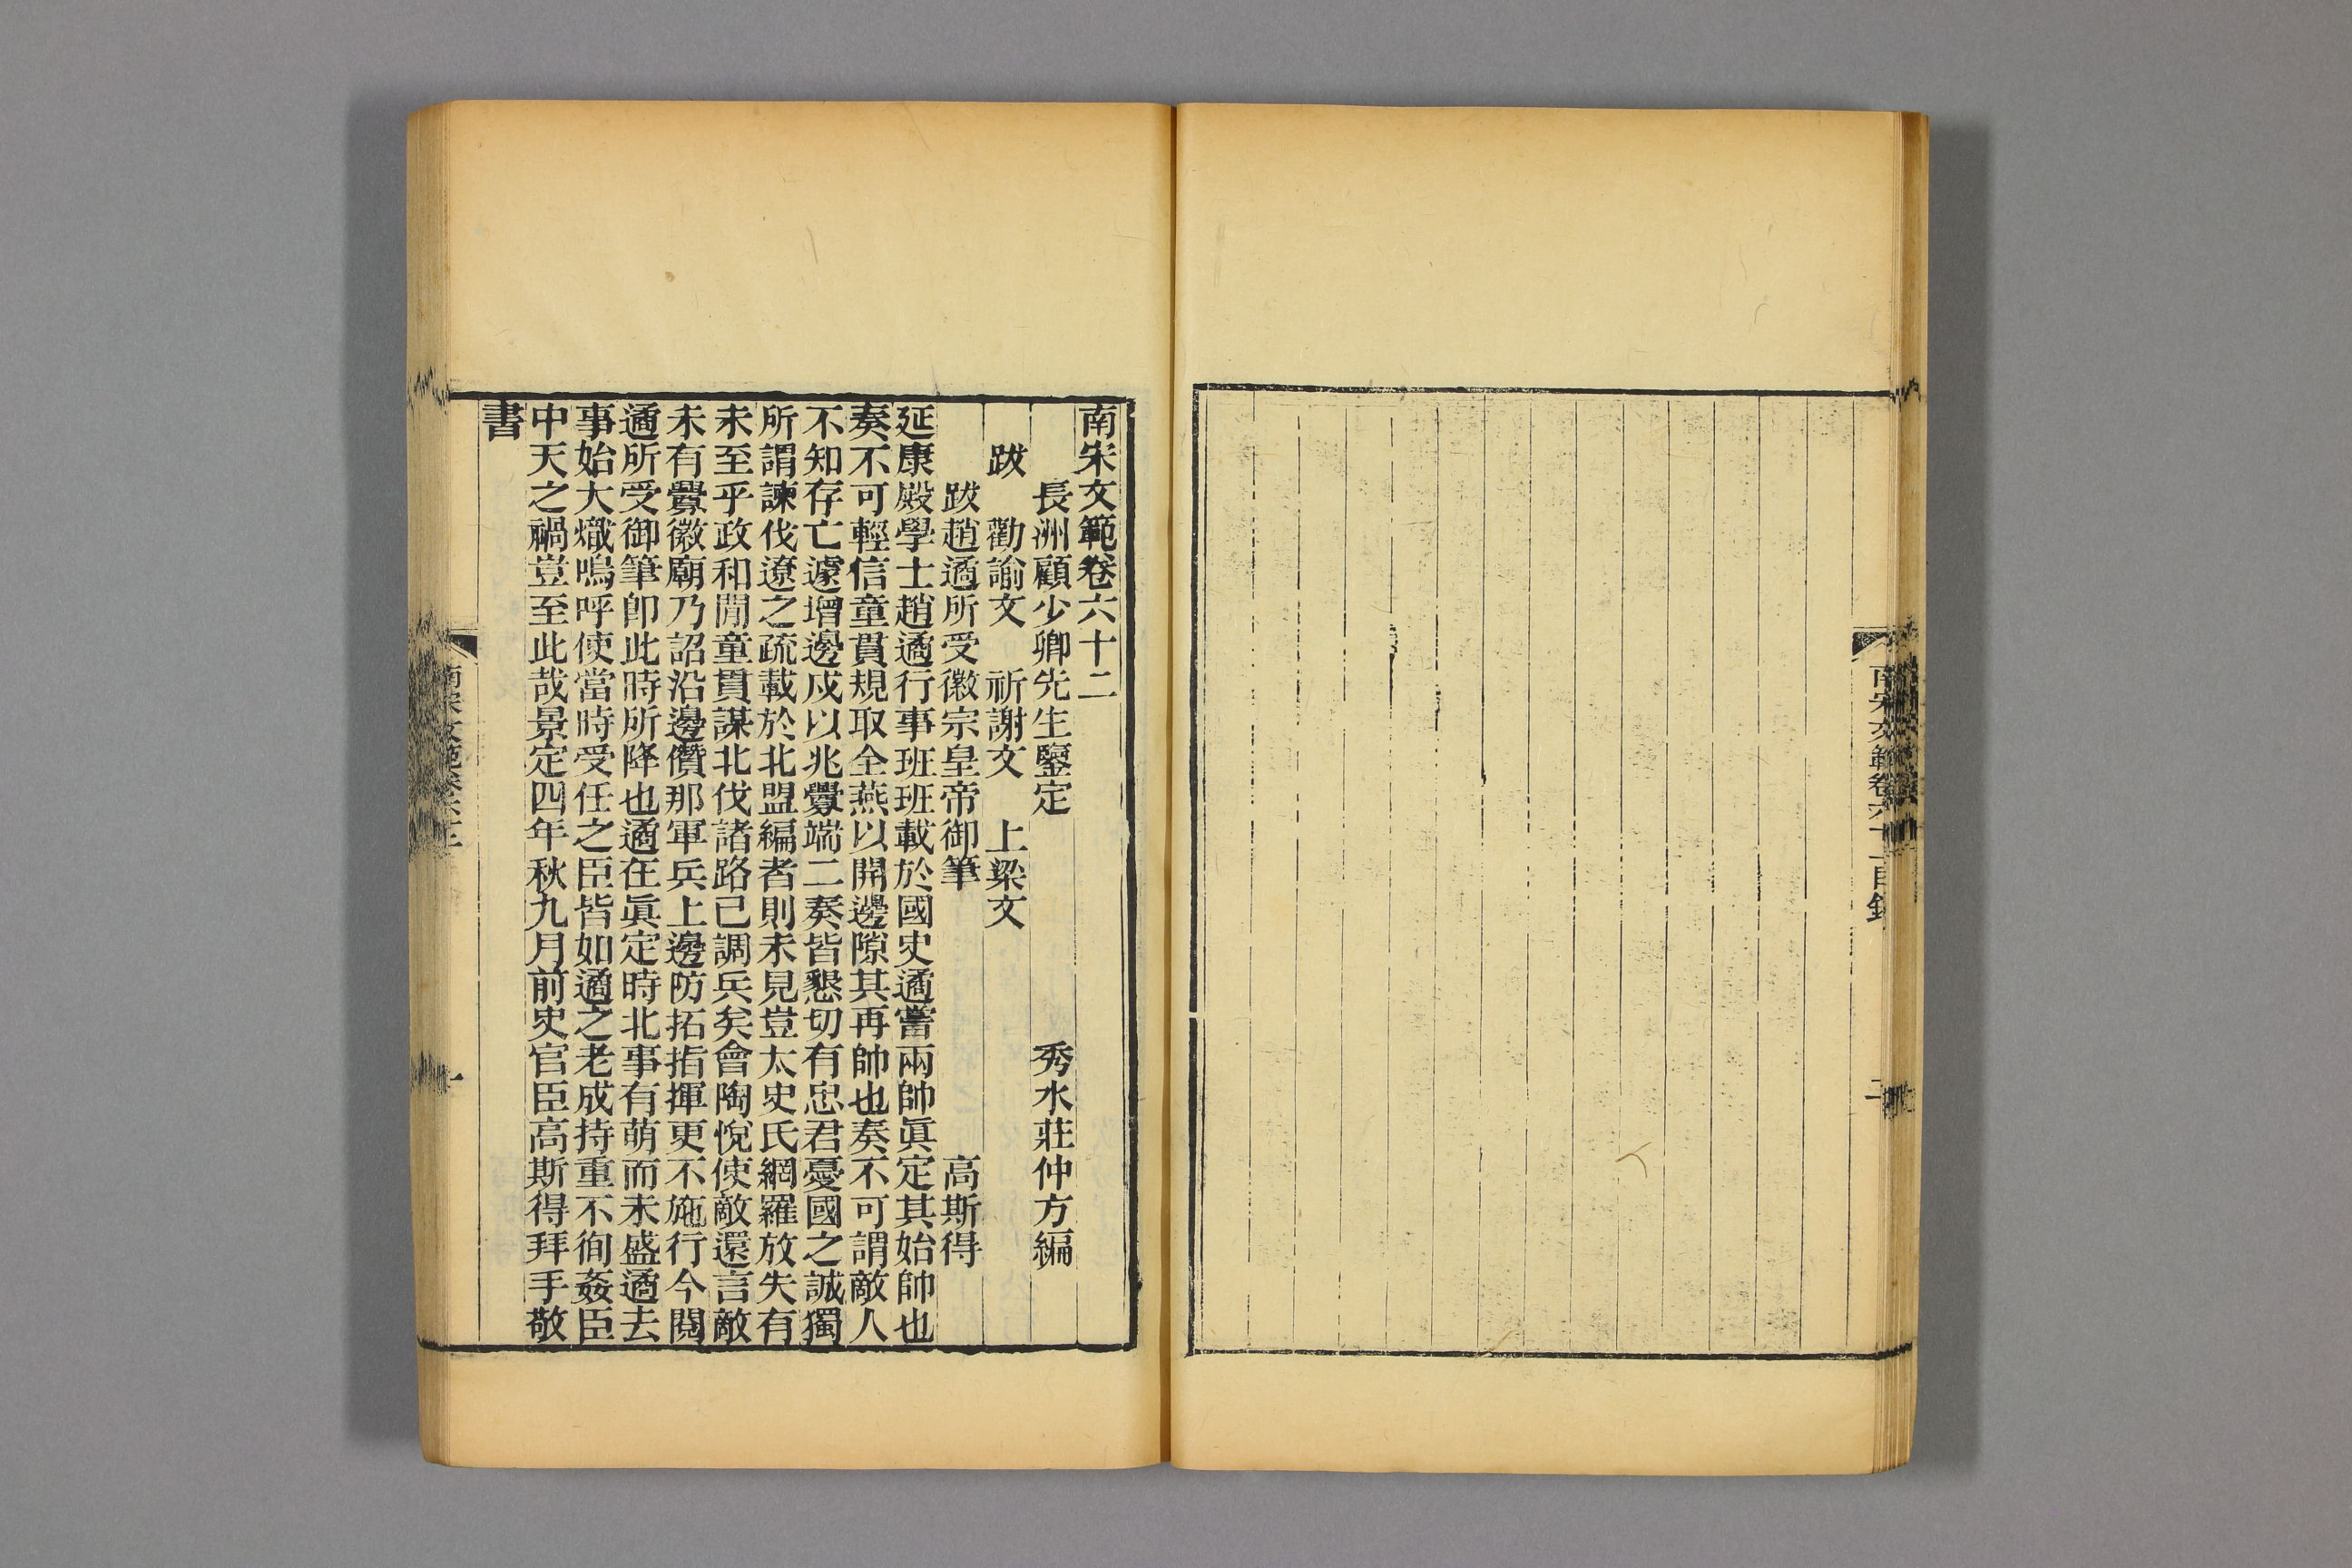 南宋文範卷六十二目錄
二
南宋文範卷六十二
長洲顧少卿先生鑒定 秀水莊仲方編
跋 勸諭文 祈謝文 上梁文
跋趙遹所受徽宗皇帝御筆 高斯得
延康殿學士趙遹行事班班載於國史遹嘗兩帥眞定其始帥也
奏不可輕信童貫規取全燕以開邊隙其再帥也奏不可謂敵人
不知存亡遽增邊戍以兆釁端二奏皆懇切有忠君憂國之誠獨
所謂諫伐遼之疏載於北盟編者則未見豈太史氏網羅放失有
未至乎政和閒童貫謀北伐諸路已調兵矣會陶悅使敵還言敵
未有釁徽廟乃詔沿邊儹那軍兵上邊防拓指揮更不施行今閱
遹所受御筆卽此時所降也遹在眞定時北事有萌而未盛遹去
事始大熾嗚呼使當時受任之臣皆如遹之老成持重不徇姦臣
中天之禍豈至此哉景定四年秋九月前史官臣高斯得拜手敬
書
南宋文範卷六十二
一